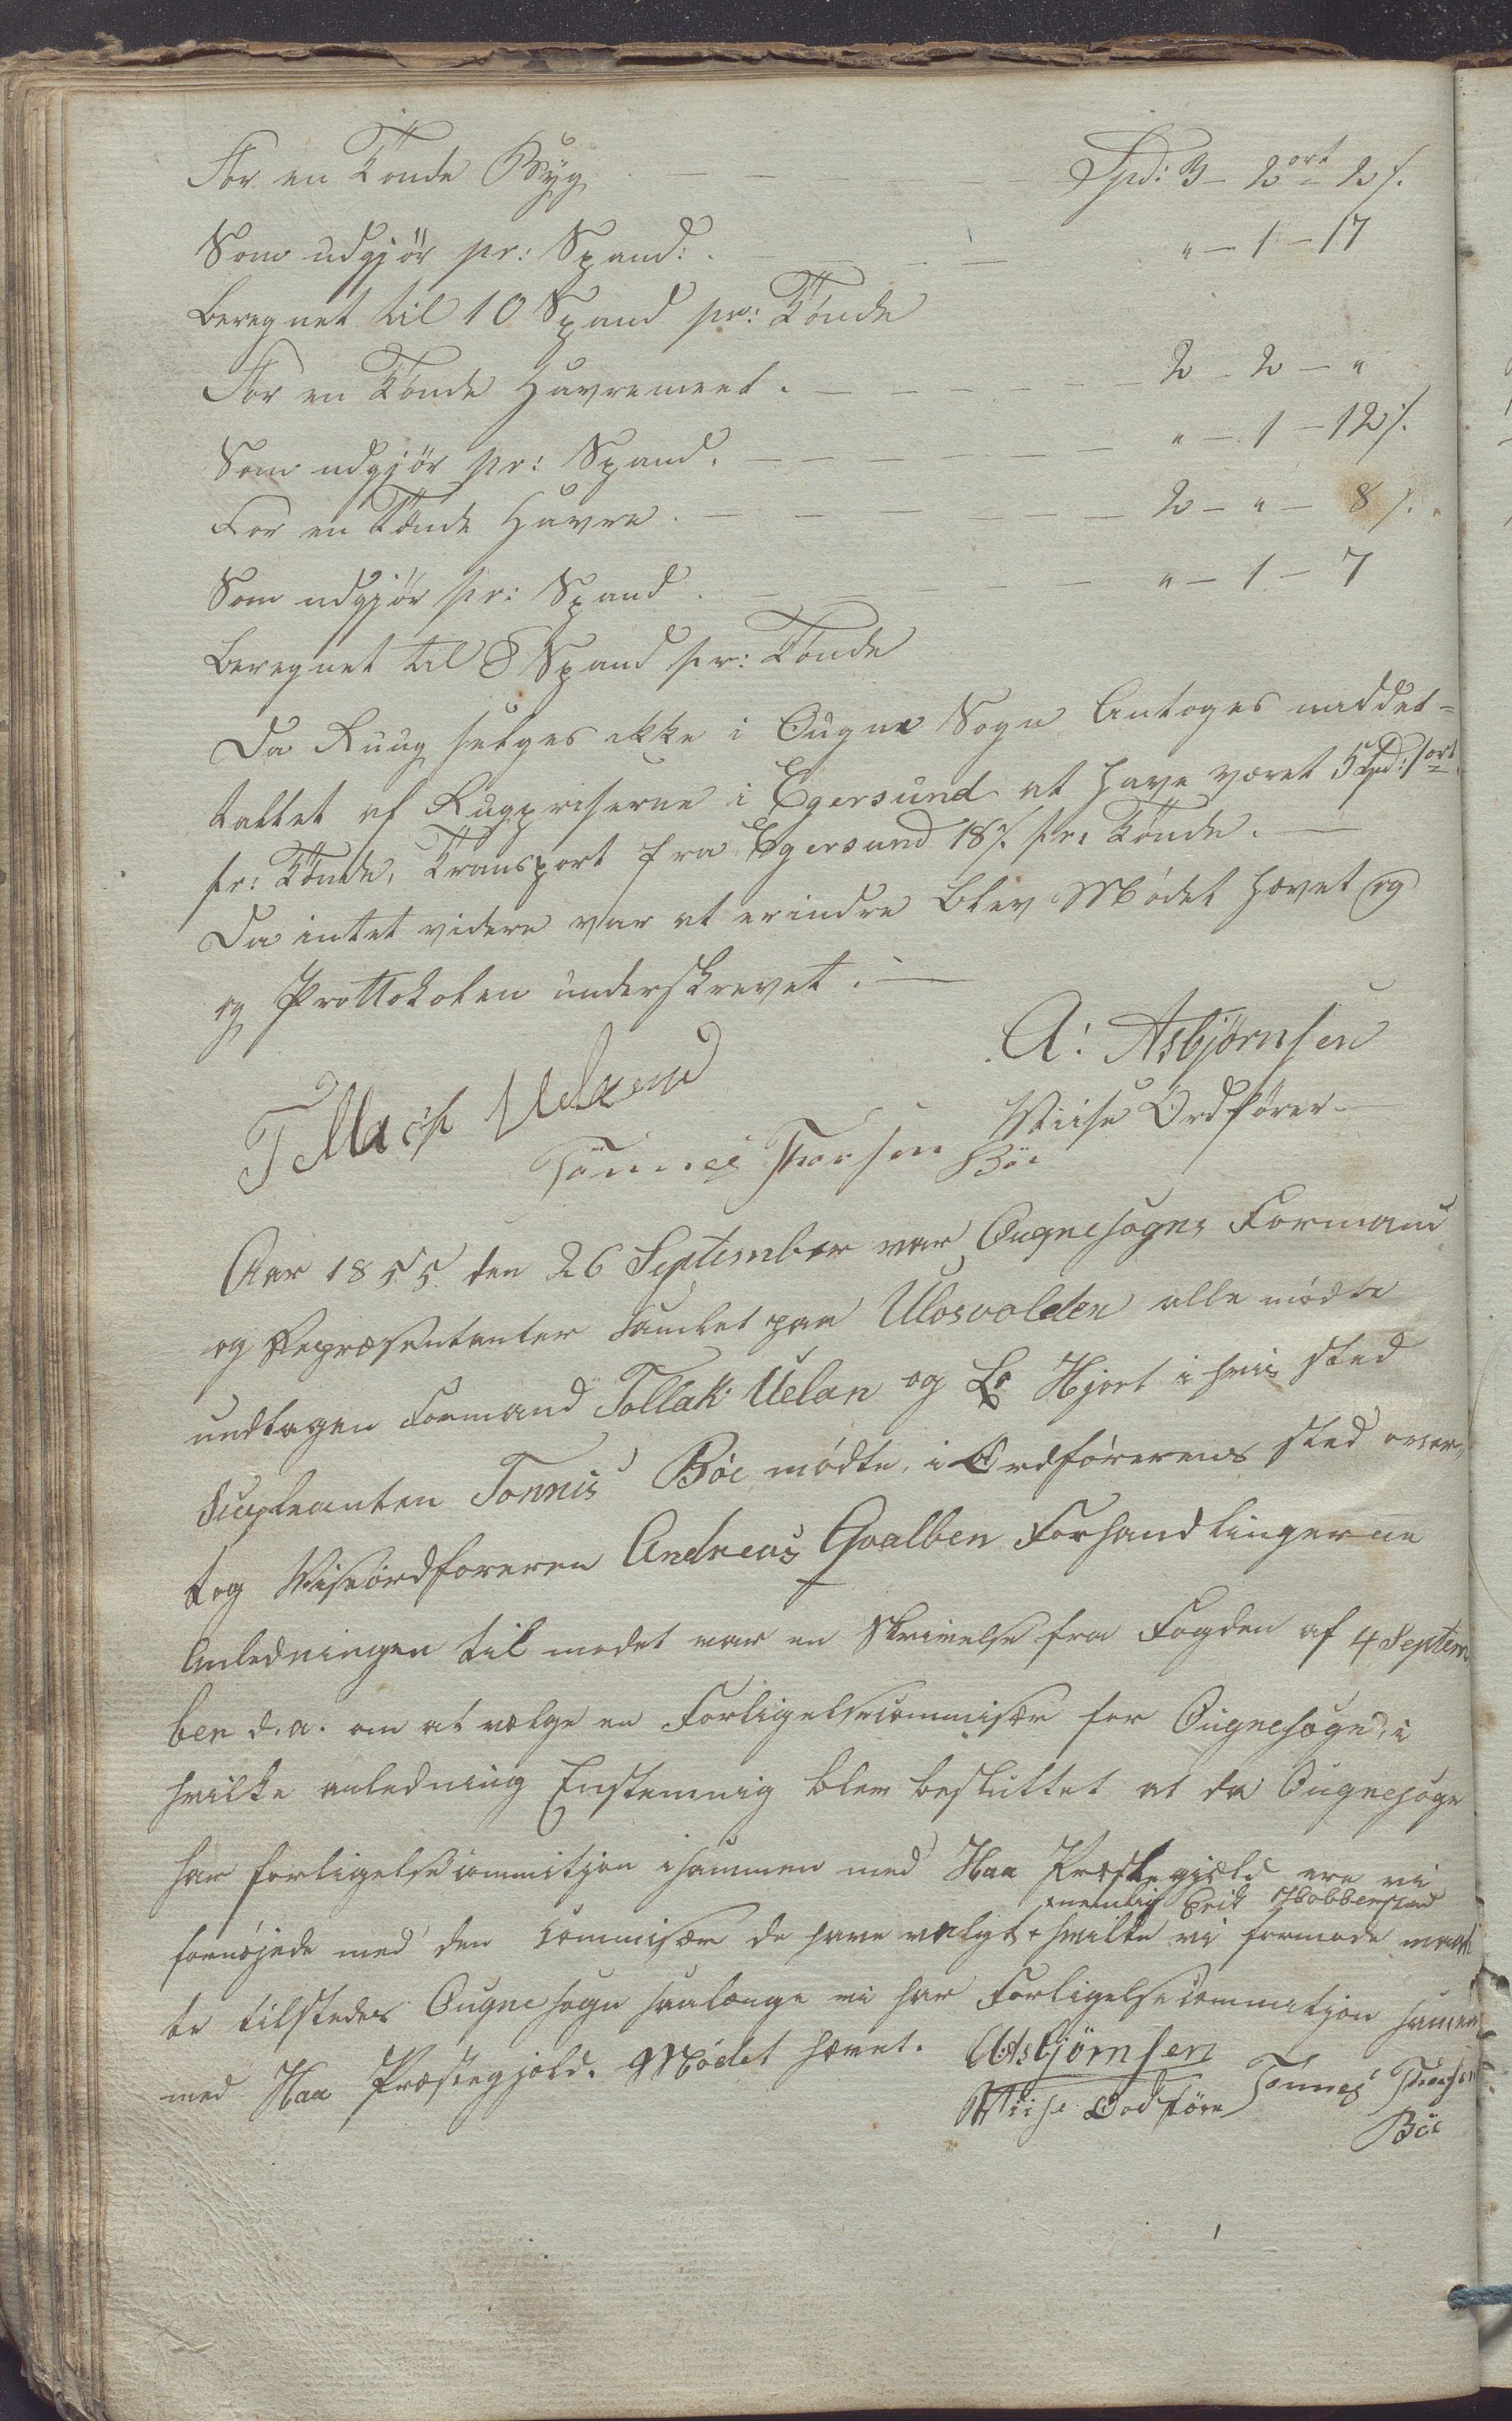 For en Tønde Byg. — — — — — Spd: 3 - 2 ort - 2 s.
Som udgjör pr: Spand: . — — — " - 1 - 17
beregnet til 10 Spand pr: Tønde
For en Tønde Havremeel. — — — — 2 - 2 - "
Som udgjör pr: Spand. — — — — — " - 1 - 12 s.
For en Tønde Havre. — — — — — — 2 - " - 8 s.
Som udgjør pr: Spand. — — — — " - 1 - 7
beregnet til 8 Spand pr: Tønde
Da Ruug sælges ikke i Ougne Sogn Antoges middel-
tallet af Rugpriserne i Egersund at have været 5 Spd: 1 ort
pr: Tønde, Transport fra Egersund 18 s. pr: Tønde. —
Da intet videre var at erindre blev Mødet hævet og
og Prottokolen underskrevet. —
A: Asbjørnsen
Viise Ordfører —
Tollach
Tønnes Thorsen Bøe
Aar 1855 den 26 September var Ougnesogns Formænd
og Repræsentanter samlet paa Ulosvolden alle mødte
undtagen Formand Tollak Uelan og Hjort i hvis sted
Supleanten Tonnis Böe mödte, i Ordförerens sted over-
tog Viseordføreren Andreas Qvalben Forhandlingerne
Anledningen til mødet var en Skrivelse fra Fogden af 4 Septem
ber d. a. om at vælge en Forligelsecommisær for Ougnesogn, i
hvilke anledning Enstemnig blev besluttet at da Ougnesogn
har forligelsecommitjon isammen med Haa Præstegjæld ere vi
nemlig Erik
fornøjede med den Commisær de have valgt × hvilke vi formode
te tilstedes Ougnesogn saalænge vi har Forligelsecommitjon samen
med Haa Præstegjæld. Mødet hævet. A Asbjørnsen
Viise Ordföre Tønnes Thorsen
Böe